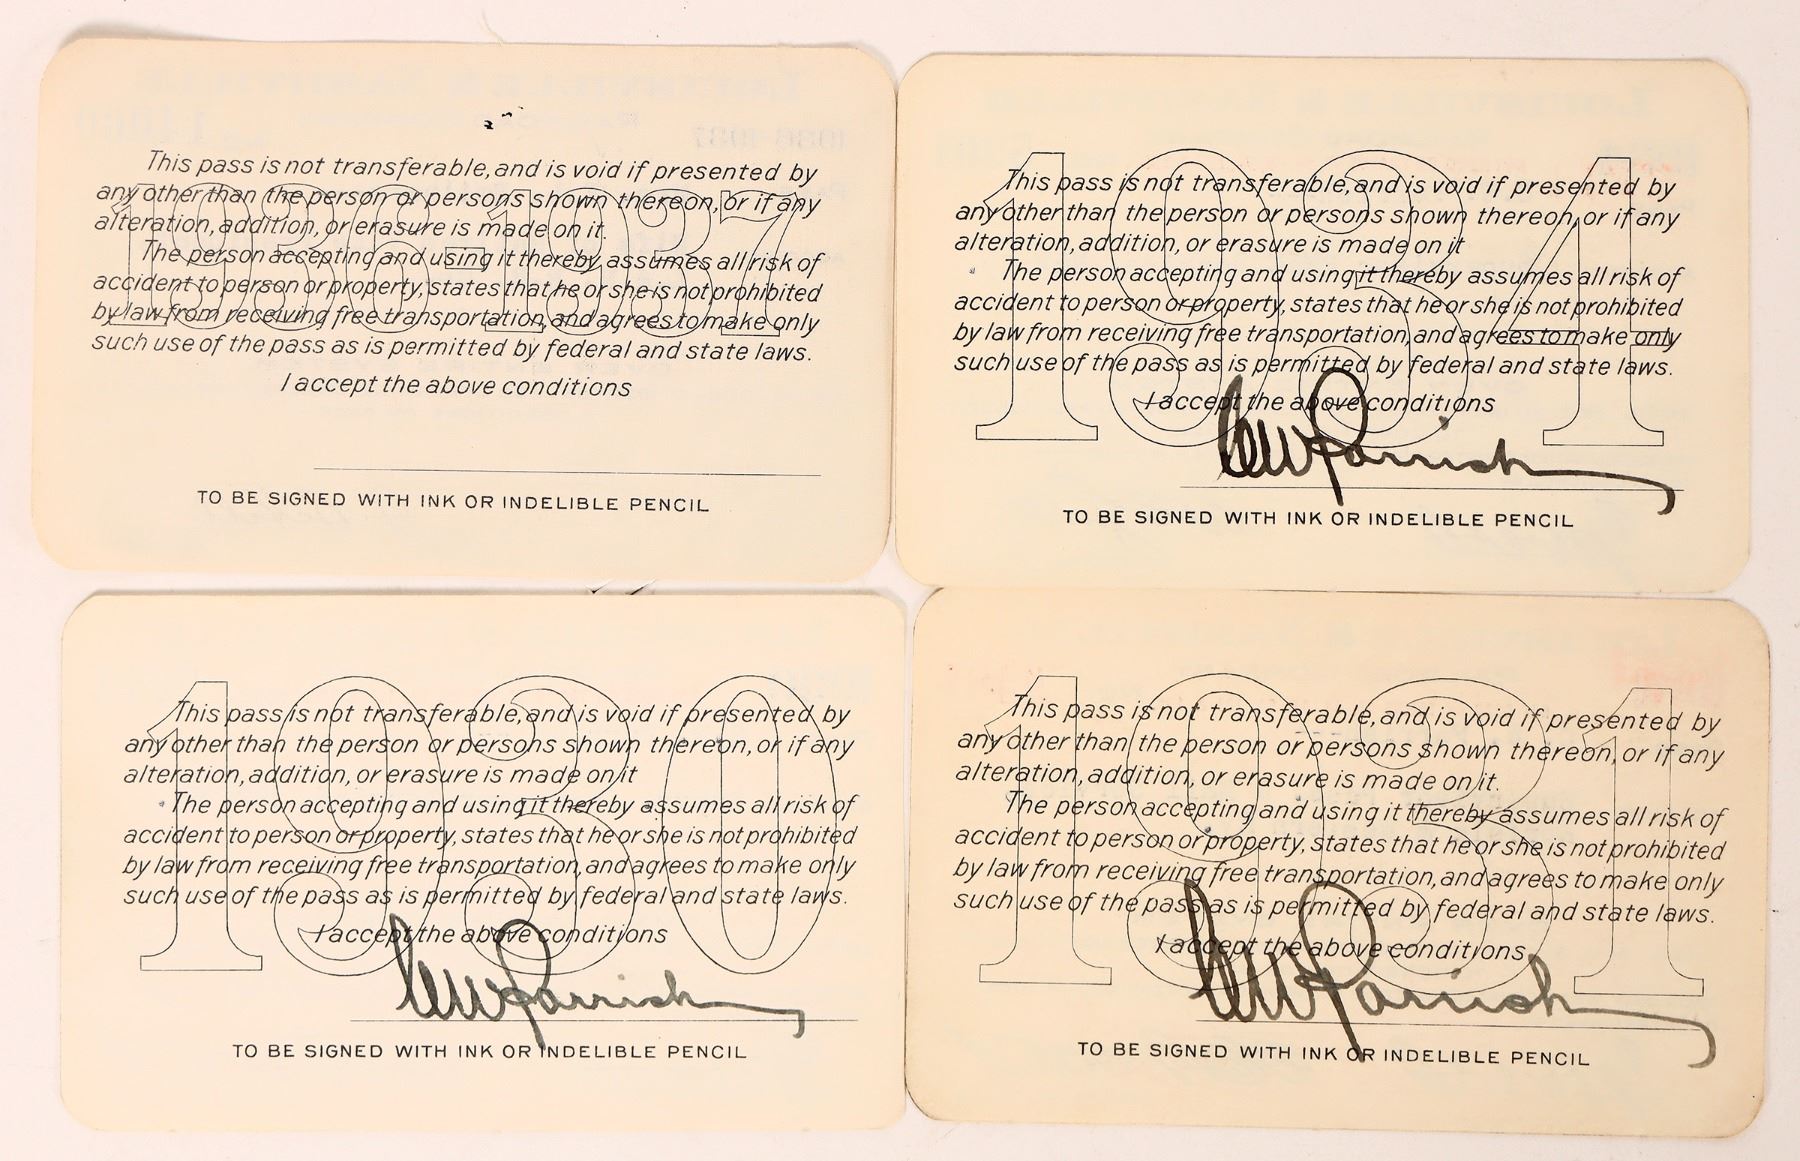 1936-1937
This pass is not transferable, and is void if presented by
any other than the person or persons shown thereon, or if any
alteration, addition, or erasure is made on it.
The person accepting and using it thereby assumes all risk of
accident to person or property, states that he or she is not prohibited
by law from receiving free transportation, and agrees to make only
such use of the pass as is permitted by federal and state laws.
I accept the above conditions
TO BE SIGNED WITH INK OR INDELIBLE PENCIL
1934
This pass is not transferable, and is void if presented by
any other than the person or persons shown thereon, or if any
alteration, addition, or erasure is made on it
The person accepting and using it thereby assumes all risk of
accident to person or property, states that he or she is not prohibited
by law from receiving free transportation, and agrees to make only
such use of the pass as is permitted by federal and state laws.
I accept the above conditions
CW Parrish
TO BE SIGNED WITH INK OR INDELIBLE PENCIL
1930
This pass is not transferable, and is void if presented by
any other than the person or persons shown thereon, or if any
alteration, addition, or erasure is made on it
The person accepting and using it thereby assumes all risk of
accident to person or property, states that he or she is not prohibited
by law from receiving free transportation, and agrees to make only
such use of the pass as is permitted by federal and state laws.
I accept the above conditions
CW Parrish
TO BE SIGNED WITH INK OR INDELIBLE PENCIL
1931
This pass is not transferable, and is void if presented by
any other than the person or persons shown thereon, or if any
alteration, addition, or erasure is made on it.
The person accepting and using it thereby assumes all risk of
accident to person or property, states that he or she is not prohibited
by law from receiving free transportation, and agrees to make only
such use of the pass as is permitted by federal and state laws.
I accept the above conditions
CW Parrish
TO BE SIGNED WITH INK OR INDELIBLE PENCIL